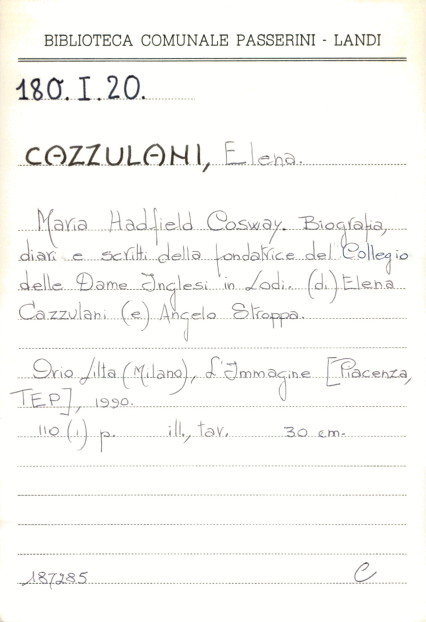 BIBLIOTECA COMUNALE PASSERINI - LANDI
180.I.20.
CAZZULANI, Elena.
Maria Hadfield Cosway. Biografia,
diari e scritti della fondatrice del Collegio
delle Dame Inglesi in Lodi. (di) Elena
Cazzulani (e) Angelo Stroppa.
Orio Litta (Milano), L'Immagine [Piacenza,
TEP], 1990.
110 (1) p. ill., tav. 30 cm.
187285 C